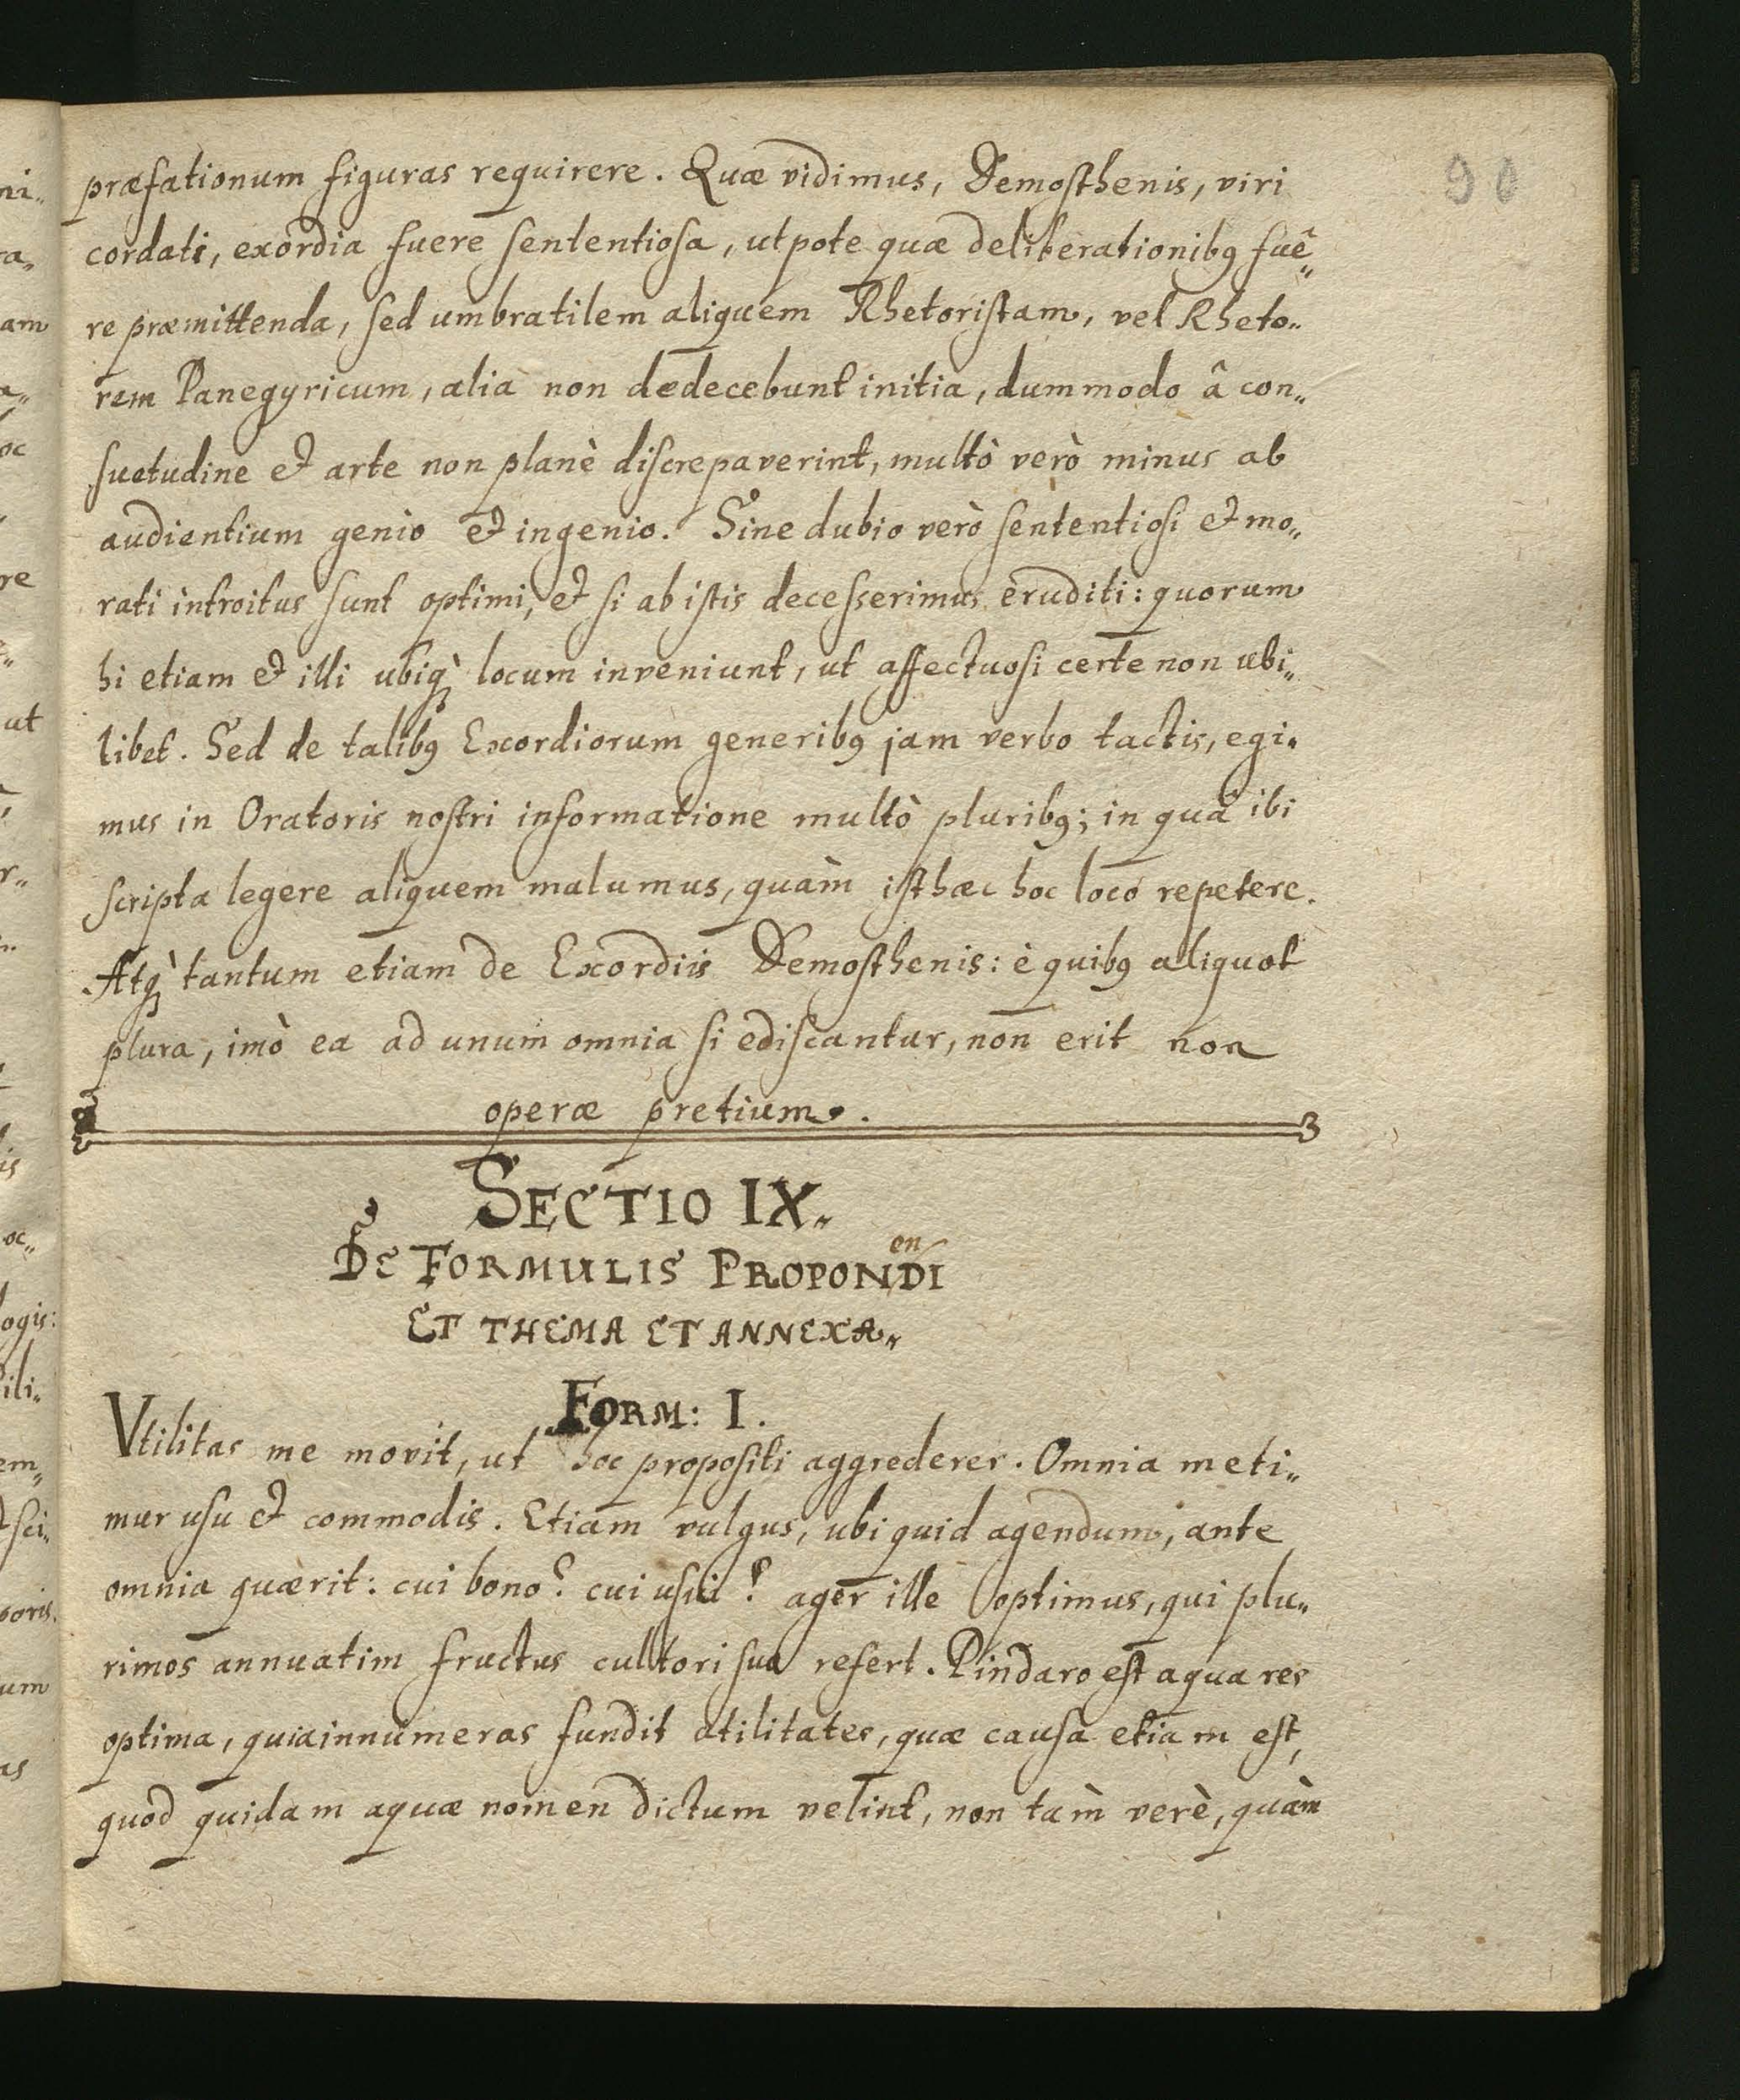 90
præfationum figuras requirere. Quæ vidimus, Demosthenis, viri
cordati, exordia fuere sententiosa, utpote quæ deliberationibꝯ fuê„
re præmittenda, sed umbratilem aliquem Rhetoristam, vel Rheto„
rem Panegyricum, alia non dedecebunt initia, dummodo â con„
suetudine et arte non planè discrepaverint, multò verò minus ab
audientium genio et ingenio. Sine dubio verò sententiosi et mo„
rati introitus sunt optimi, et si ab istis decesserimus eruditi: quorum
hi etiam et illi ubiq̀ locum inveniunt, ut affectuosi certe non ubi„
libet. Sed de talibꝯ Exordiorum generibꝯ jam verbo tactis, egi„
mus in Oratoris nostri informatione multò pluribꝯ; in quâ ibi
scripta legere aliquem malumus, quàm isthæc hoc loco repetere.
Atq̀ tantum etiam de Exordiis Demosthenis: è quibꝯ aliquot
plura, imò ea ad unum omnia si ediscantur, non erit non
operæ pretium.
SECTIO IX.
en
DE FORMULIS PROPONDI
ET THEMA ET ANNEXA„
FORM: I.
Vtilitas me movit, ut hoc propositi aggrederer. Omnia meti„
mur usu et commodis. Etiam vulgus, ubi quid agendum, ante
omnia quærit: cui bono? cui usui? ager ille optimus, qui plu„
rimos annuatim fructus cultori suo refert. Pindaro est aqua res
optima, quia innumeras fundit utilitates, quæ causa etiam est,
quod quidam aquæ nomen dictum velint, non tàm verè, quàm